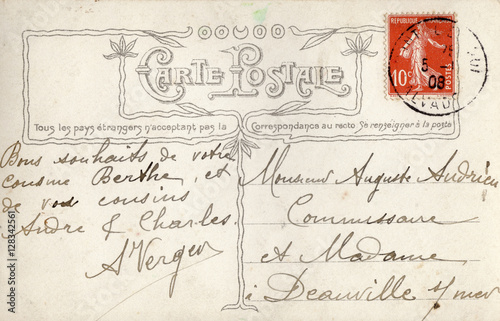 CARTE POSTALE
Tous les pays étrangers n'acceptant pas la Correspondance au recto Se renseigner à la poste
REPUBLIQUE FRANÇAISE
10c
POSTES
5
08
Bons souhaits de votre
cousine Berthe, et
de vos cousins
André & Charles.
A Verger
Monsieur Auguste Andrieu
Commissaire
et Madame
à Deauville s/mer